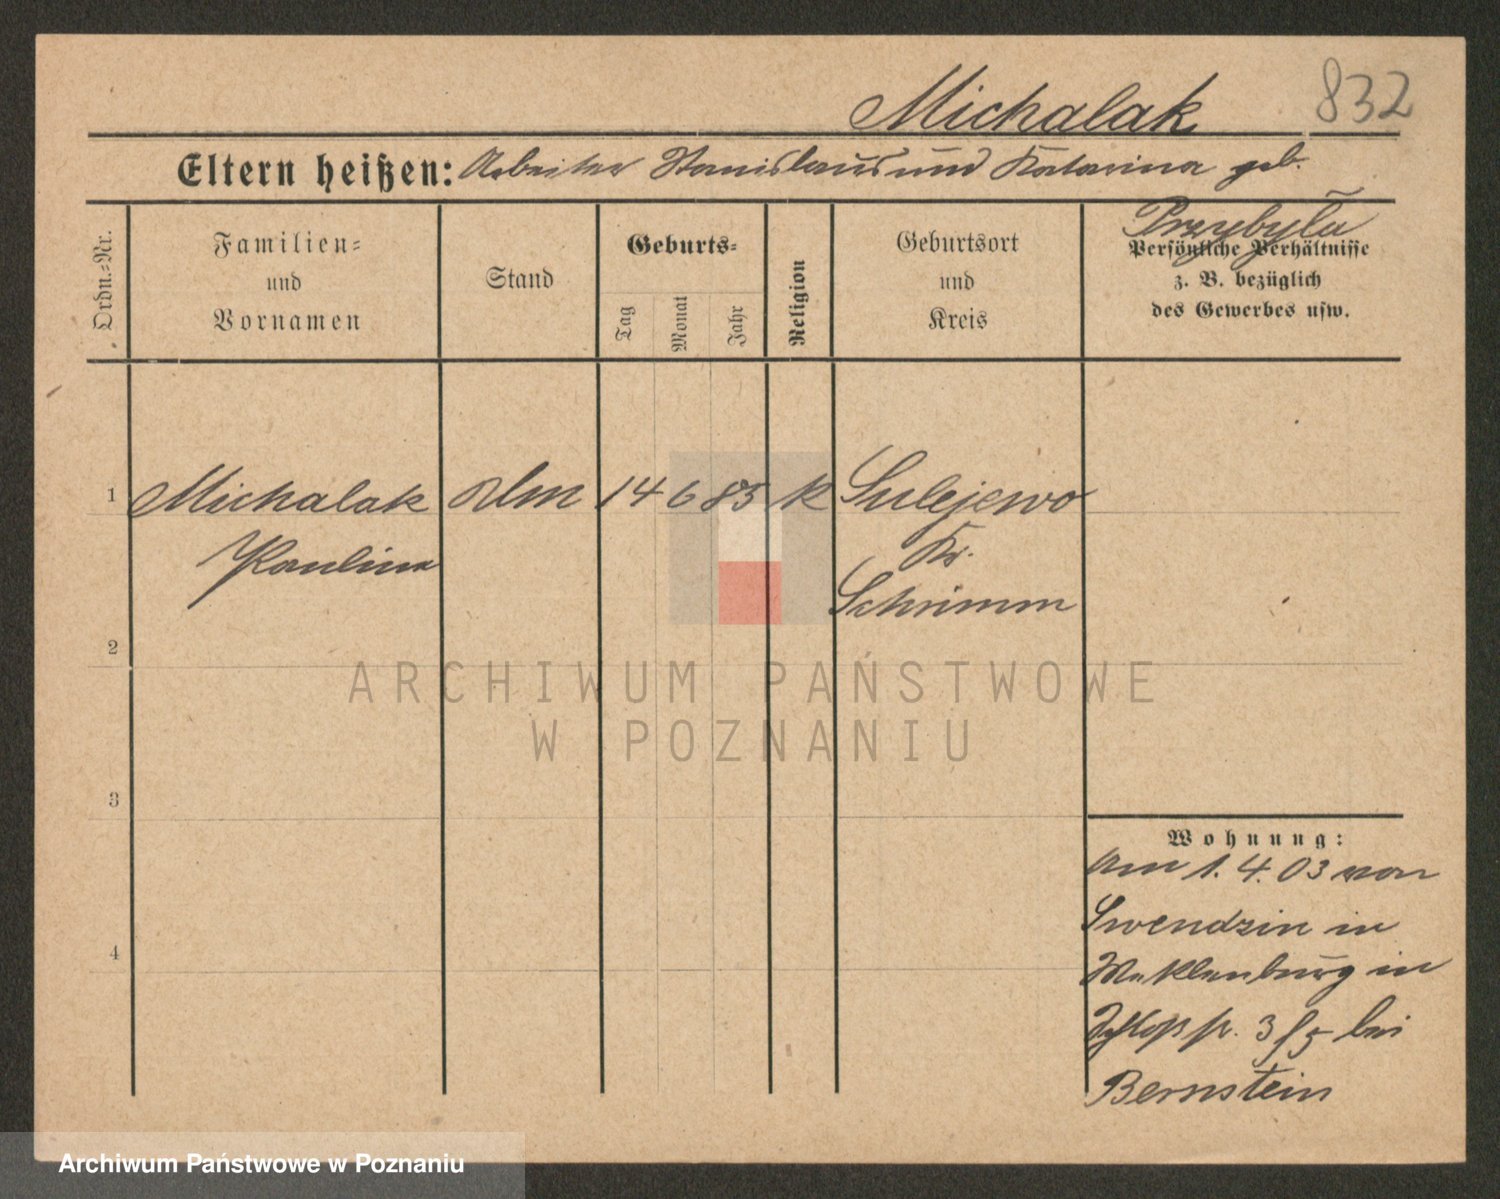 832
Michalak
Eltern heißen: Arbeiter Stanislaus und Katarina geb.
Przybyla
Ordn.=Nr.
Familien=
und
Vornamen
Stand
Geburts=
Tag
Monat
Jahr
Religion
Geburtsort
und
Kreis
Persönliche Verhältnisse
z. B. bezüglich
des Gewerbes usw.
1 Michalak 14 6 85 k Sulejewo
Paulina Kr.
Schrimm
2
3
4
ARCHIWUM PAŃSTWOWE
W POZNANIU
Wohnung:
Am 1. 4. 03 von
Swendzin in
Meklenburg in
Schloßstr. 3 bei
Bernstein
Archiwum Państwowe w Poznaniu